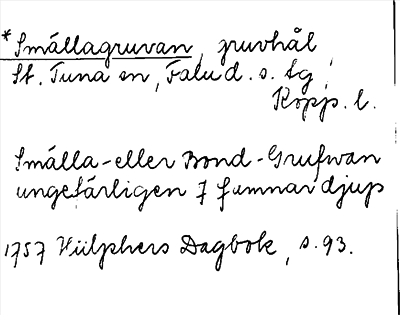 *Smällagruvan, gruvhål,
St. Tuna sn, Falu d. s. lg,
Kopp. l.
Smälla-eller Bond-Grufwan
ungefärligen 7 famnar djup
1757 Hülphers Dagbok, s. 93.